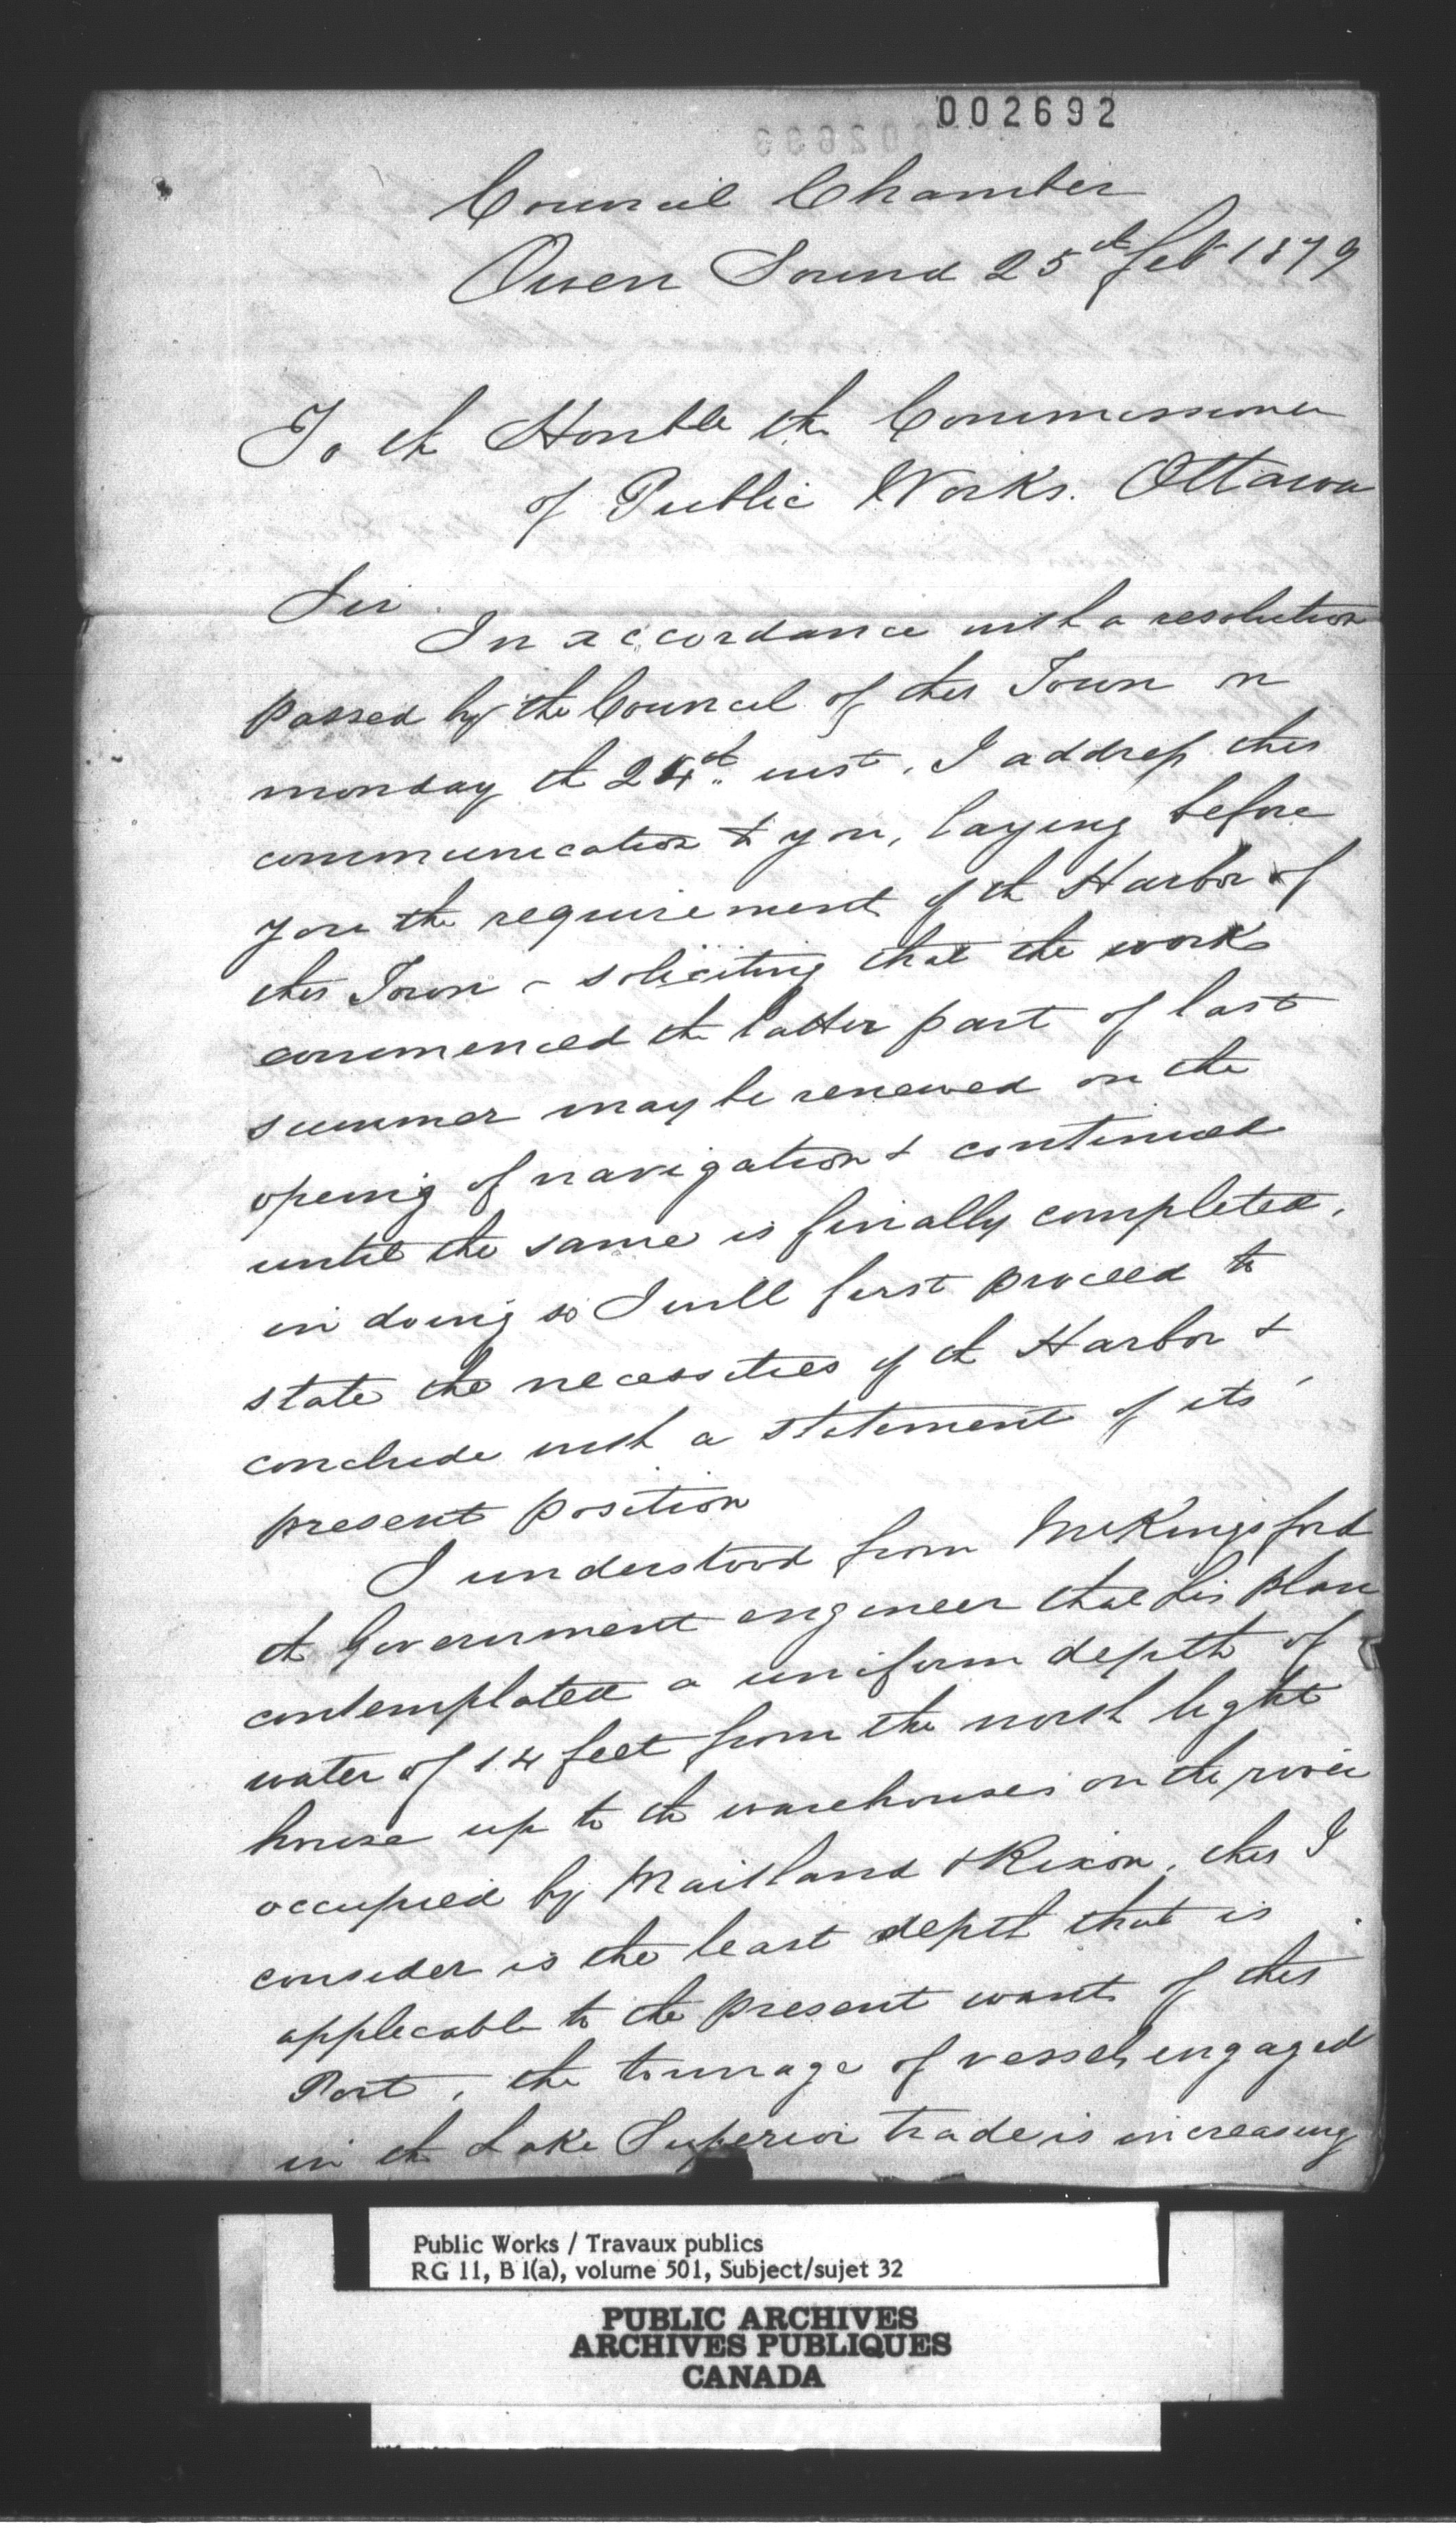 002692
Council Chamber
Owen Sound 25th Feb 1879
To th Honble the Commissioner
of Public Works. Ottawa
Sir.
In accordance with a resolution
passed by the Council of this Town on
monday th 24th inst. I address this
communication to you, laying before
you the requirement of th Harbor of
this Town - soliciting that the work
commenced th latter part of last
summer may be renewed on the
opening of navigation & continued
until the same is finally completed,
in doing so I will first proceed to
state the necessities of th Harbor &
conclude with a statement of its
present position
I understood from Mr Kingsford
th Government engineer that his plan
contemplated a uniform depth of
water of 14 feet from the north light
house up to th warehouses on the river
occupied by Maitland & Rixon, this I
consider is the least depth that is
applicable to the present wants of this
Port, the tonnage of vessels engaged
in th Lake Superior trade is increasing
Public Works / Travaux publics
RG 11, B 1(a), volume 501, Subject/sujet 32
PUBLIC ARCHIVES
ARCHIVES PUBLIQUES
CANADA